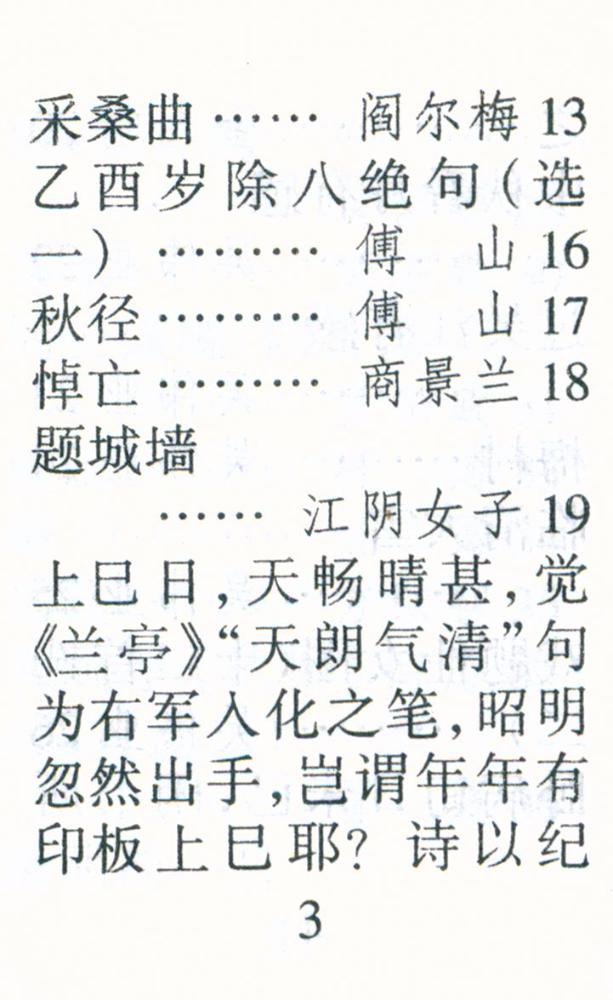 采桑曲…… 阎尔梅 13
乙酉岁除八绝句(选
一) ……… 傅 山 16
秋径……… 傅 山 17
悼亡……… 商景兰 18
题城墙
…… 江阴女子 19
上巳日,天畅晴甚,觉
《兰亭》“天朗气清”句
为右军入化之笔,昭明
忽然出手,岂谓年年有
印板上巳耶? 诗以纪
3